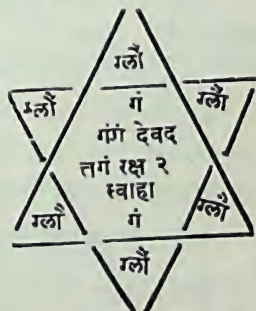 ग्लौं
ग्लौं
गं
ग्लौं
गंगं देवद
त्तगं रक्ष २
स्वाहा
ग्लौं
गं
ग्लौं
ग्लौं